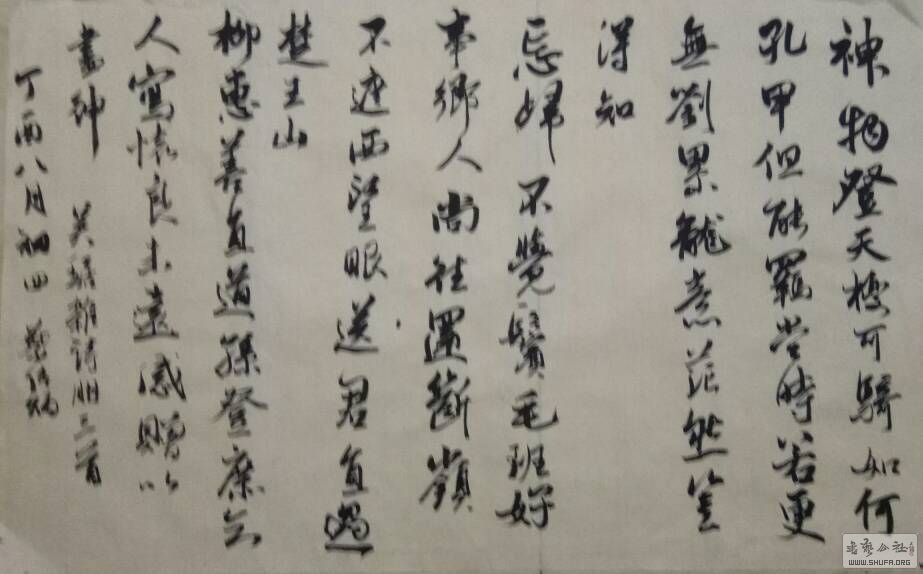 神物登天擾可騎如何
孔甲但能羈當時若更
無劉累龍意茫然豈
得知
忘歸不覺鬢毛班好
事鄉人尚往還斷嶺
不遮西望眼送君直過
楚王山
柳惠善直道孫登庶知
人寫懷良未遠感贈以
書紳 雜詩三首
丁酉八月初四
www.SHUFA.ORG